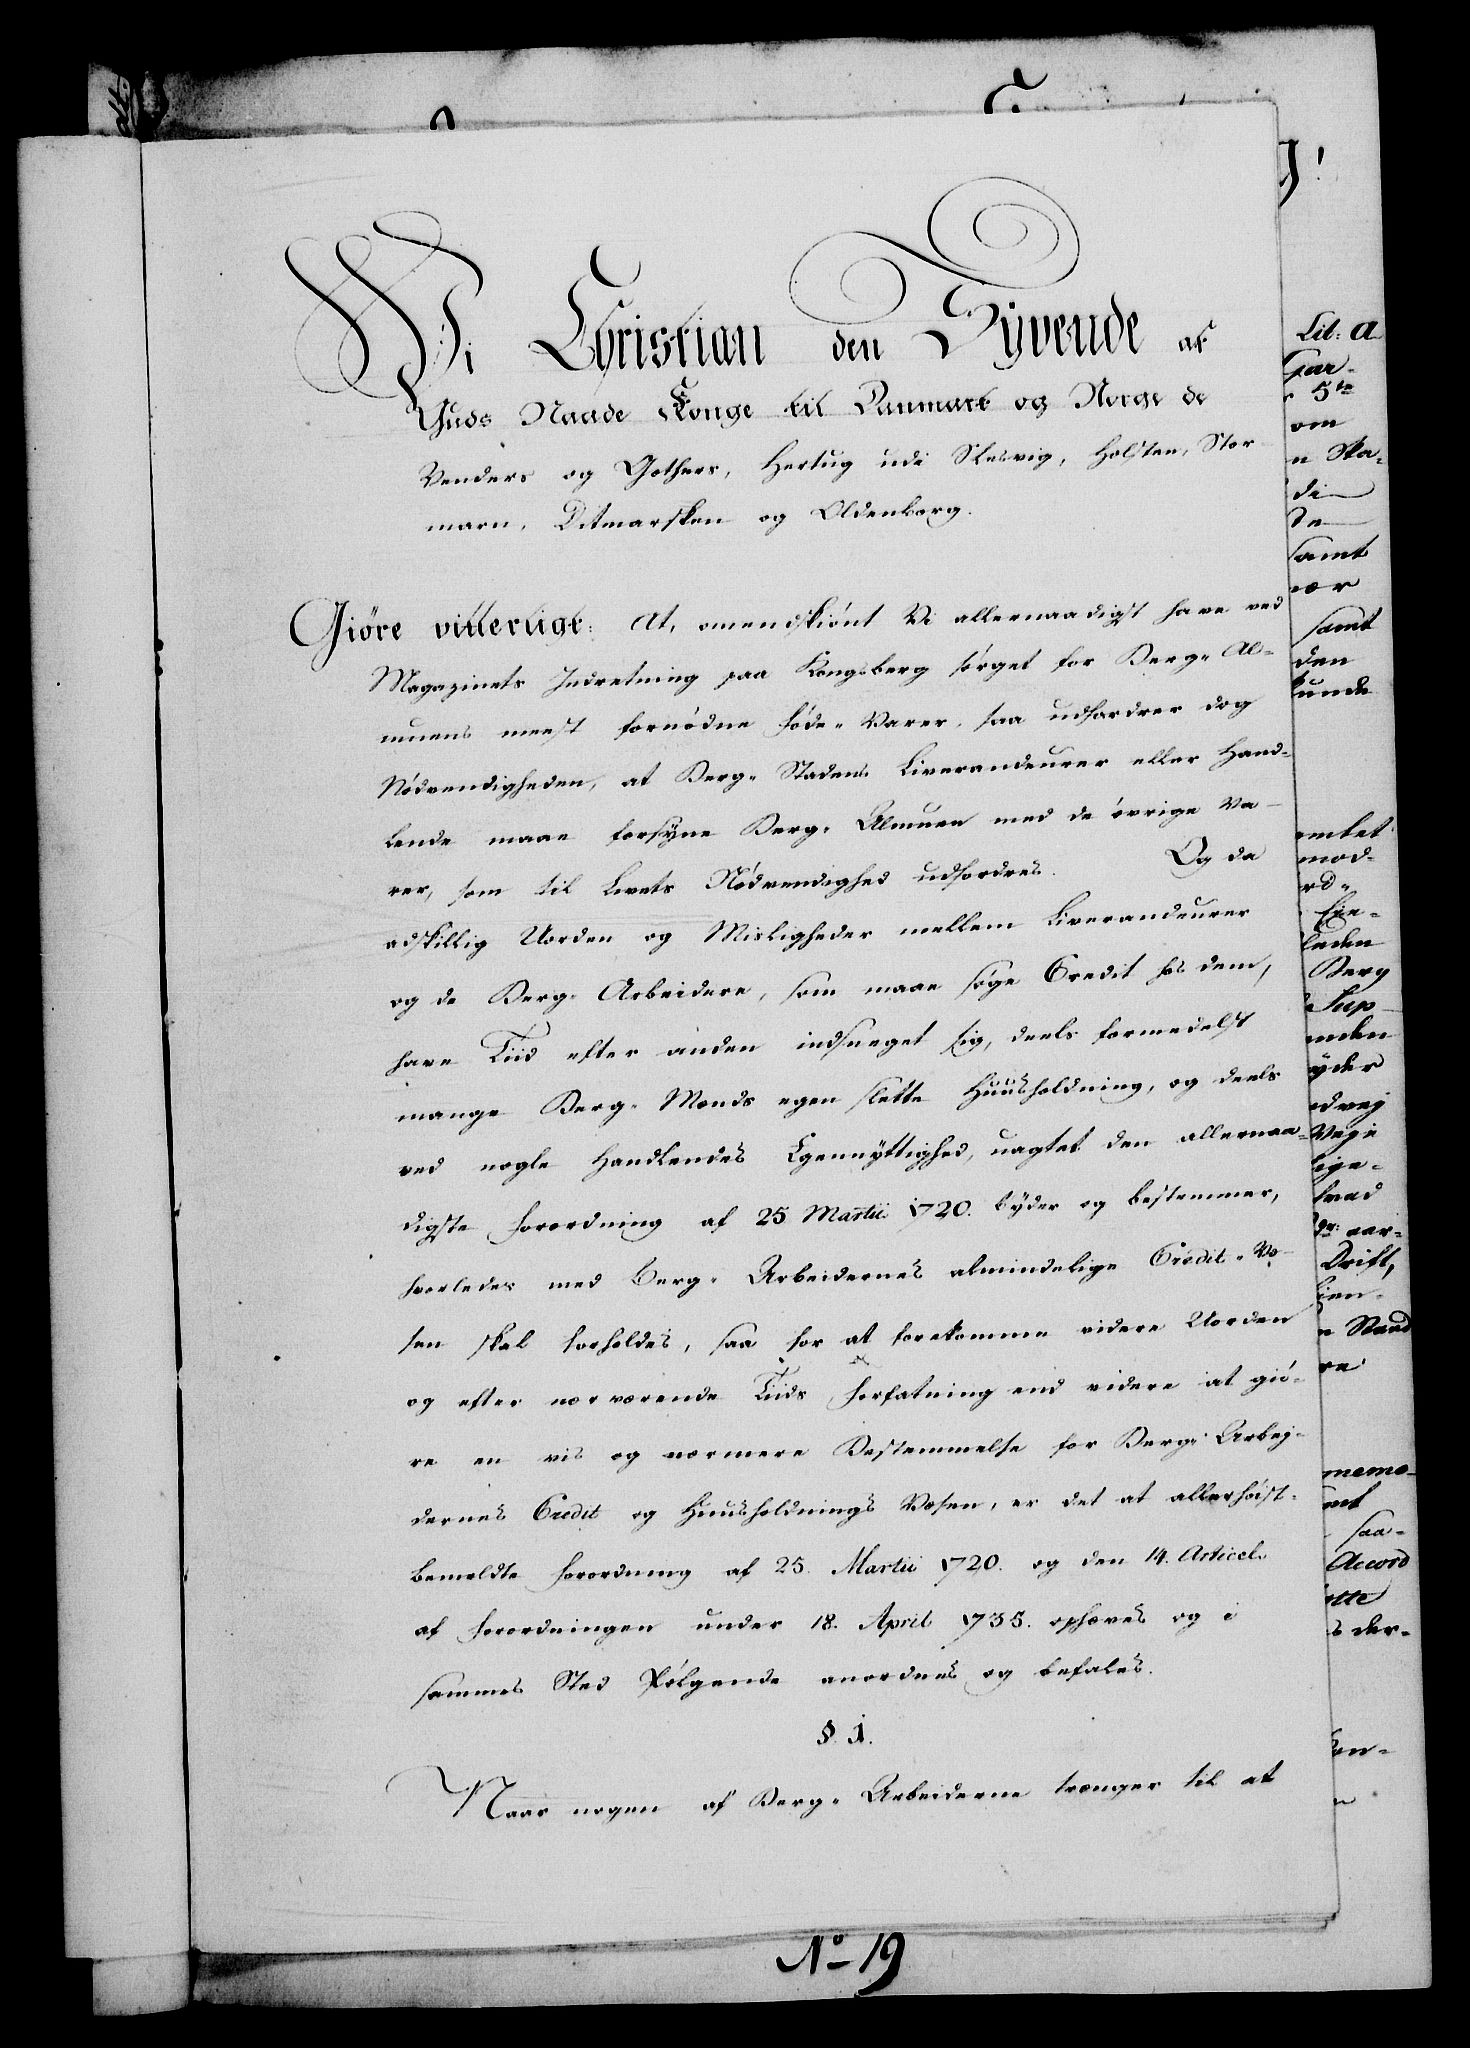 Vi Christian den Syvende af
Guds Naade Konge til Danmark og Norge de
Venders og Gothers, Hertug udi Slesvig, Holsten, Stor
marn, Ditmarsken og Oldenborg.
Giöre vitterligt: At, omendskiönt Vi allernaadigst have ved
Magazinets Indretning paa Kongsberg sörget for Berg-Al-
muens meest fornödne Föde-Varer, saa udfordrer dog
Nödvendigheden, at Berg-Stadens Liverandeurer eller Hand-
lende maae forsyne Berg-Almuen med de övrige Va-
rer, som til Livets Nödvendighed udfordres. Og da
adskillig Uorden og Misligheder mellem Liverandeurer
og de Berg-Arbeidere, som maae söge Credit hos dem,
have Tiid efter anden indsneget sig, deels formedelst
mange Berg-Mænds egen slette Huusholdning, og deels
ved nogle Handlendes Egennyttighed, uagtet den allernaa-
digste Forordning af 25 Martii 1720. byder og bestemmer,
hvorledes med Berg-Arbeidernes almindelige Credit-Væ-
sen skal forholdes, saa for at forekomme videre Uorden
og efter nærværende Tiids Forfatning end videre at giö-
re en vis og nærmere Bestemmelse for Berg-Arbej-
dernes Credit og Huusholdnings Væsen, er det at allerhöist-
bemeldte Forordning af 25. Martii 1720. og den 14. Articel
af Forordningen under 18. April 1735. ophæves og i
sammes Sted Fölgende anordnes og befales.
§. 1.
Naar nogen af Berg-Arbeiderne trænger til at
No 19
Lit: a
5te
om
samt
samt
den
kunde
mod-
Berg
Drift,
saa-
Accord
der-